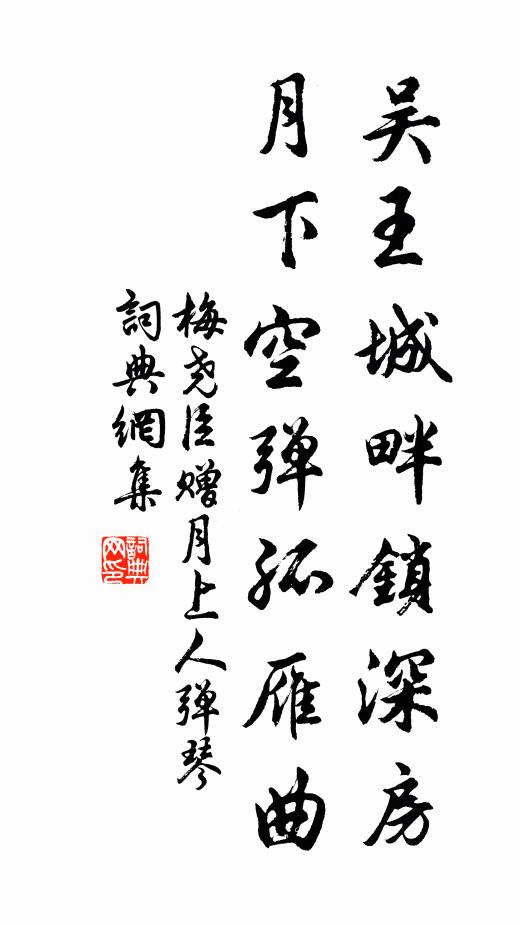 吴王城畔鎖深房
月下空弹孤雁曲
梅尧臣赠月上人弹琴
詞典網集
詞典网印